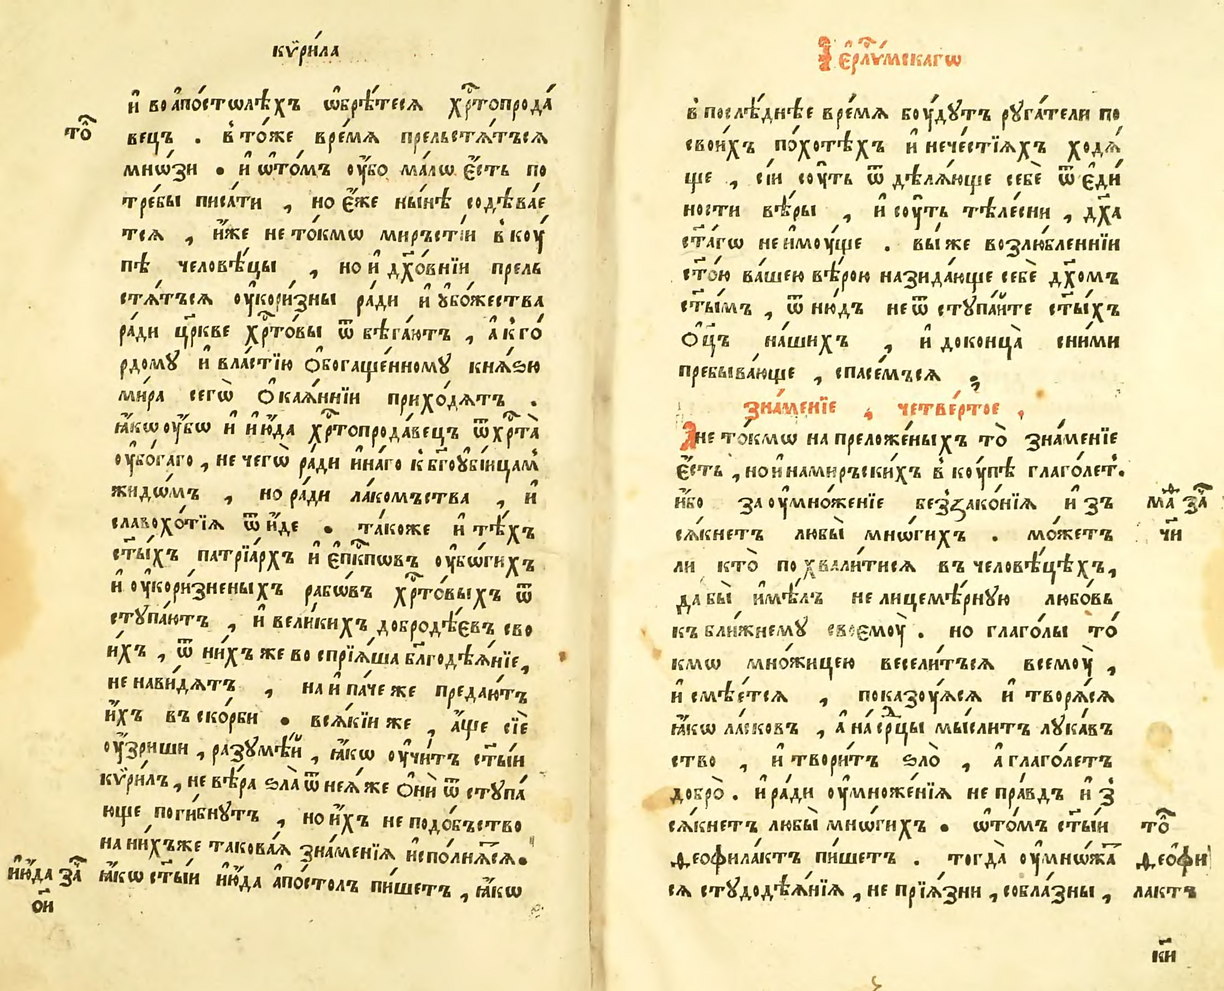 кѷ҆ри́ла
и҆ во а҆по́столѣхъ ѡ҆брѣ́теся хрⷭ҇топрода́
то̑
вецъ . в҆ то́же вре́мя прельстя́тъся
мно́ѕи • и҆ ѡ҆то́мъ оу҆́бо ма́лѡ є҆́сть по
тре́бы писа́ти , но є҆́же ны́нѣ содѣва́е
тся , и҆́же не то́кмѡ миръсті́и в҆ коу́
пѣ человѣ́цы , но и҆ дх҃о́внїи прель
стя́тъся оу҆кори́зны ра́ди и҆ ᲂубо́жества
ра́ди цр҃кве хрⷭ҇то́вы ѿ бѣга́ютъ , а҆ к҆ го́
рдому и҆ вла́стїю ѻ҆богаще́нному кня́ѕю
ми́ра сегѡ̀ ѻ҆кая́ннїи прихо́дятъ .
ꙗ҆́кѡ оу҆́бѡ и҆ и҆ю́да хрⷭ҇топрода́вецъ ѿ хрⷭ҇та̀
оу҆бо́гаго , не чегѡ̀ ра́ди и҆на́го к҆ бг҃оуби́ицам̾
жидѡ́мъ , но ра́ди ла́комъства , и҆
славохо́тїя ѿ и҆́де • та́коже и҆ тѣ́хъ
ст҃ы́хъ патрїа́рхъ и҆ є҆пⷭ҇кпѡвъ оу҆бо́гихъ
и҆ оу҆кори́зненыхъ рабѡ́въ хрⷭ҇то́выхъ ѿ
ступа́ютъ , и҆ вели́кихъ добродѣ́євъ сво
и́хъ , ѿ ни́хъ же во спрїя́ша бл҃годѣя́нїе,
не нави́дятъ , на и҆ па́че же предаю́тъ
и҆́хъ въ ско́рби • вся́кїи же , а҆́ще сїѐ
оу҆́зриши , разумѣ́й , ꙗ҆́кѡ оу҆́читъ ст҃ы́и
кѷ҆ри́лъ , не вѣ́ра ѕла̀ ѿ нея́ же ѻ҆нѝ ѿ ступа́
юще поги́бнутъ , но и҆́хъ не подо́бъство
на ни́хъже такова́я зна́менїя и҆спо́лнѧѧся •
и҆ю́да за̑
ꙗ҆́кѡ ст҃ы́и и҆ю́да а҆по́столъ пи́шетъ , ꙗ҆́кѡ
о҃и
І҆єр҇лⷭ҇и́мскагѡ
в҆ послѣ́днѣе вре́мя боу́дутъ руга́тели по
свои́хъ по́хотѣхъ и҆ нече́стїяхъ ходя́
ще , сі́и соу́ть ѿ дѣля́юще себѐ ѿ є҆ди́
ности вѣ́ры , и҆ соу́ть тѣле́сни , дх҃а
ст҃а́гѡ не и҆моу́ще . вы́же возлю́бленнїи
ст҃о́ю ва́шею вѣ́рою назида́юще себѐ дх҃омъ
ст҃ы́мъ , ѿ ню́дъ не ѿ ступа́йте ст҃ы́хъ
ѻ҆ц҃ъ на́шихъ , и҆ доконца̀ сни́ми
пребыва́юще , спасе́мъся ;
зна́менїе , четве́ртое ,
И҆ не то́кмѡ на преложе́ныхъ то̀ зна́менїе
є҆́сть , но и҆ на миръски́хъ в҆ коу́пѣ глаго́лет̾.
и҆́бо за оу҆множе́нїе без̾зако́нїя и҆ зъ
мⷴ҇а̑ за̑
ся́кнетъ любы̀ мно́гихъ . мо́жетъ
чи
ли кто̀ похвали́тися въ человѣ́цѣхъ,
дабы̀ и҆мѣ́лъ не лицемѣ́рную любо́вь
къ бли́жнему своемоу̀ . но глаго́лы то́
кмѡ мно́жицею весели́тъся всемоу̀ ,
и҆ смѣе́тся , показоу́яся и҆ творя́ся
ꙗ҆́кѡ ла́сковъ , а҆ на срⷣцы мы́слитъ лука́в
ство , и҆ твори́тъ ѕло̀ , а҆ глаго́летъ
добро̀ . и҆ ра́ди оу҆множе́нїя не пра́вдъ и҆ з̾
ся́кнетъ любы̀ мно́гихъ • ѡ҆то́мъ ст҃ы́и
то̑
ѳеофила́ктъ пи́шетъ . тогда̀ оу҆мно́жа̑
ѳеѻ́фи
ся студодѣя́нїя , не прїя́зни , собла́зны ,
лактъ
к҃и